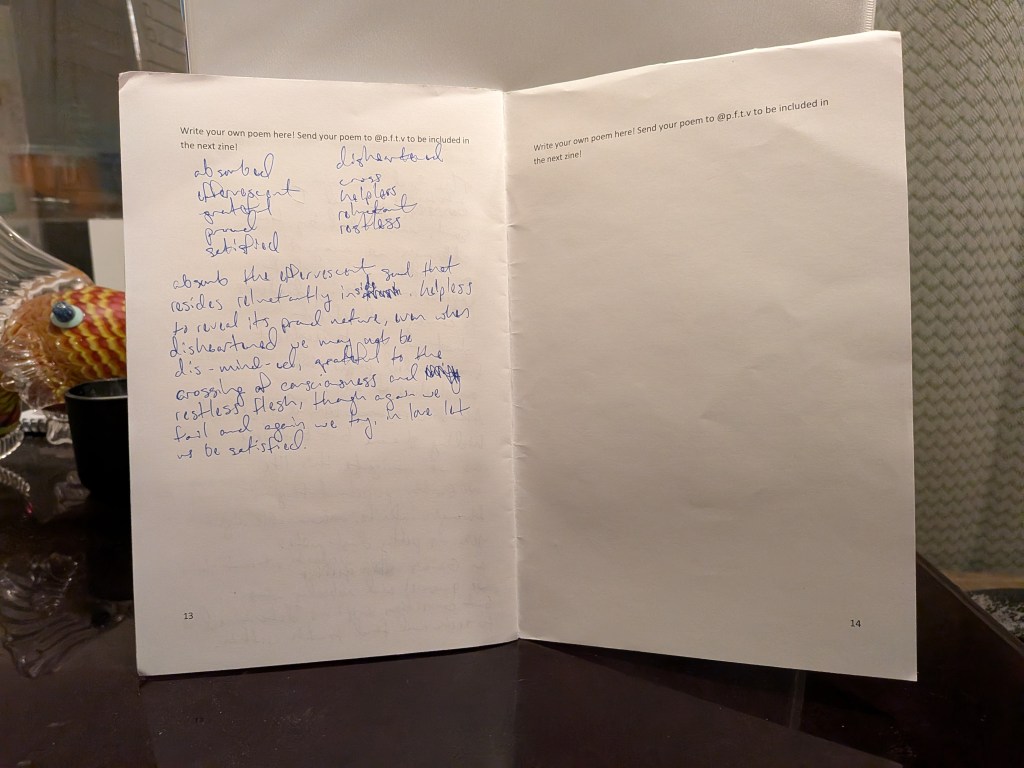 Write your own poem here! Send your poem to @p.f.t.v to be included in
the next zine!
absorbed
effervescent
grateful
proud
satisfied
disheartened
cross
helpless
reluctant
restless
absorb the effervescent soul that
resides reluctantly inside. helpless
to reveal its proud nature, even when
disheartened we may not be
dis-mind-ed, grateful to the
crossing of consciousness and
restless flesh, though again we
fail and again we try, in love let
us be satisfied.
13
Write your own poem here! Send your poem to @p.f.t.v to be included in
the next zine!
14